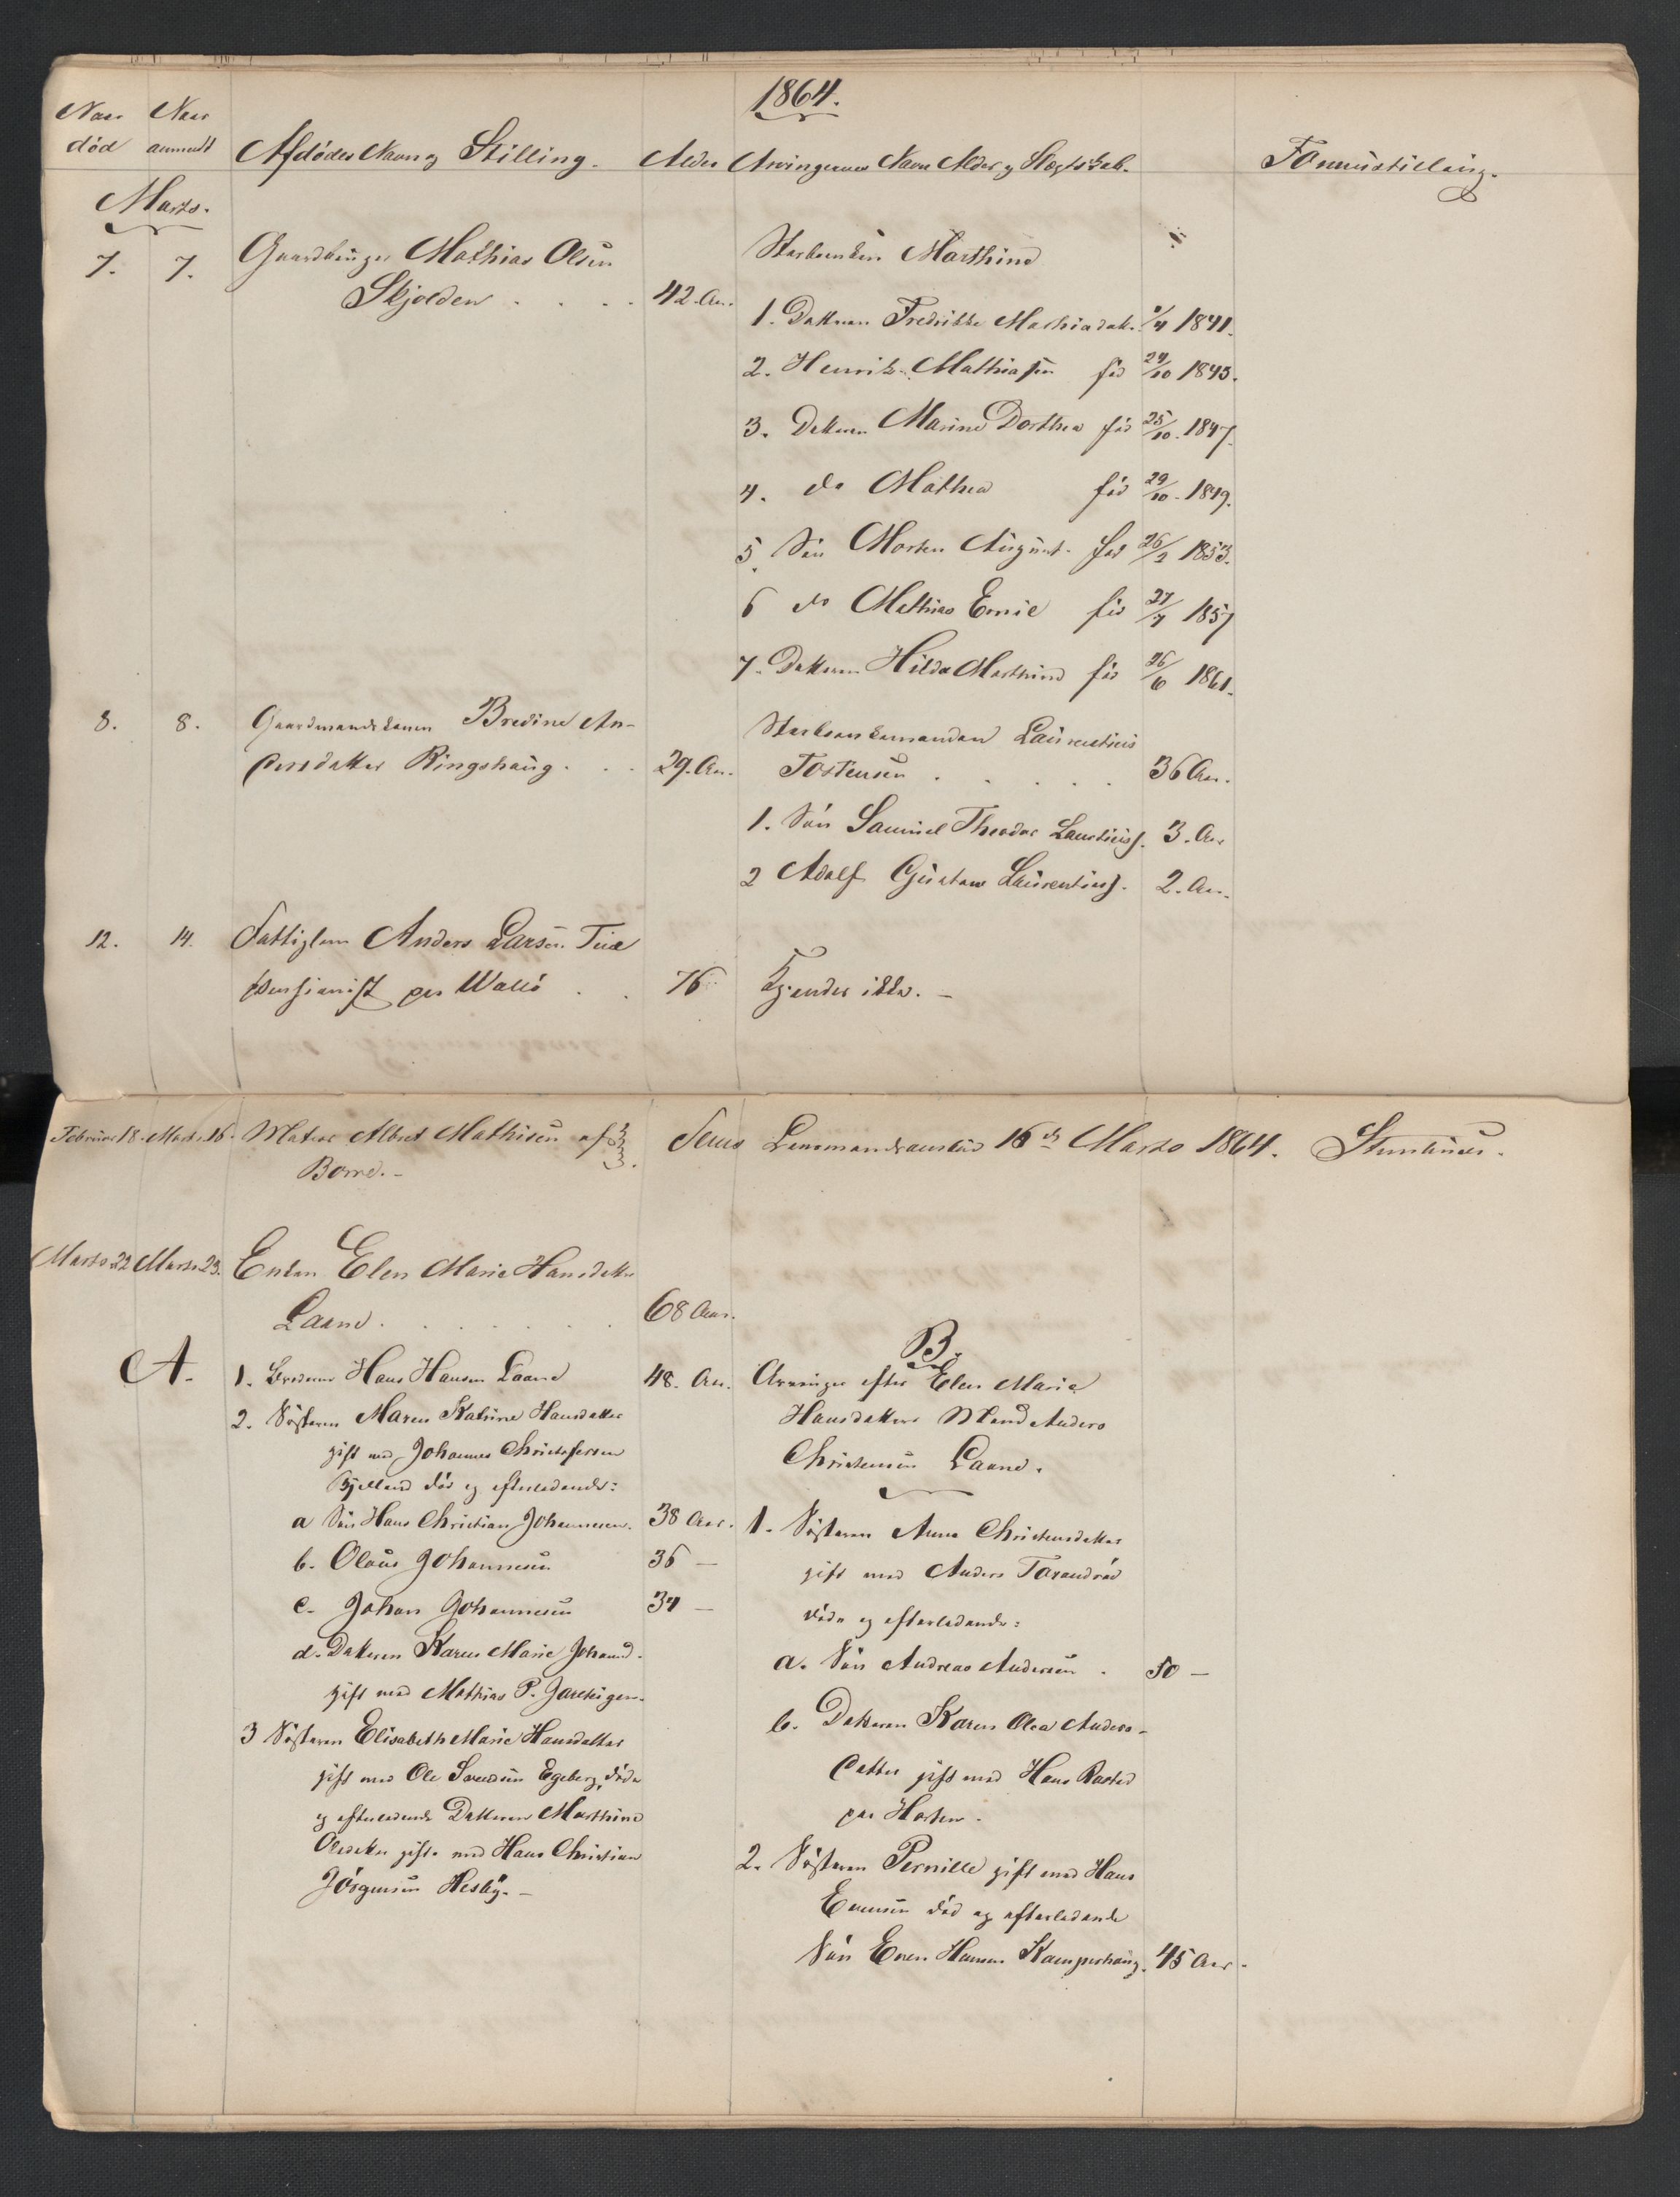 1864.
Naar død
Naar anmeldt
Afdødes Navn og Stilling.
Alder
Arvingernes Navne Alder og Slægtskab.
Formuestilling.
Marts.
7. 7. Gaardbruger Mathias Olsen
Skjolden . . . . 42. Aar.
Sterbeenken Marthine
1. Datteren Fredrikke Mathiasdatt. /4 1841.
2. Henrik Mathiasen fød 24/10 1845.
3. Datteren Marine Dorthea fød 25/10. 1847.
4. do Mathea fød 29/10. 1849.
5. Søn Morten August. fød 26/2 1853.
6 do Mathias Emil fød 27/7 1857
7. Datteren Hilda Marthine fød 26/6 1861.
8. 8. Gaardmandskonen Bredine An-
dersdatter Ringshaug . . . 29. Aar.
Sterbeenkemanden Laurentius
Tostensen . . . . . 36 Aar.
1. Søn Samuel Theodor Laurentiuss. 3. Aar
2 Adolf Gustav Laurentiuss. 2. Aar.
12. 14. Fattiglem Anders Larsen
pensionist paa Vallø . . 76
Kjendes ikke. –
Februar 18. Marts. 16. Matros Albert Mathisen af
Borre. –
Sems Lensmandsembed 16de Marts 1864.
Marts 22 Marts. 23. Enken Elen Marie Hansdatter
Laane . . . . . . . 68 Aar.
A.
1. Broderen Hans Hansen Laane 48. Aar.
2. Søsteren Maren Katrine Hansdatter
gift med Johannes Christofersen
Gjelland død og efterladende:
a Søn Hans Christian Johannesen. 38 Aar.
b. Olaus Johannesen 36 –
c. Johan Johannesen 34 –
d. Datteren Karen Marie Johannd.
gift med Mathias P. Jareteigen.
3 Søsteren Elisabeth Marie Hansdatter
gift med Ole Svendsen Egeberg, døde
og efterladende Datteren Marthine
Olsdatter gift med Hans Christian
Jörgensen Hesby. –
B.
Arvinger efter Elen Marie
Hansdatters Mand Anders
Christensen Laane.
1. Søsteren Anne Christensdatter
gift med Anders Tarandrød
døde og efterladende:
a. Søn Andreas Andersen . 50 –
b. Datteren Karen Olea Anders-
datter gift med Hans Rasted
paa Horten.
2. Søsteren Pernille gift med Hans
Evensen død og efterladende
Søn Even Hansen Kamperhaug. 45 Aar.